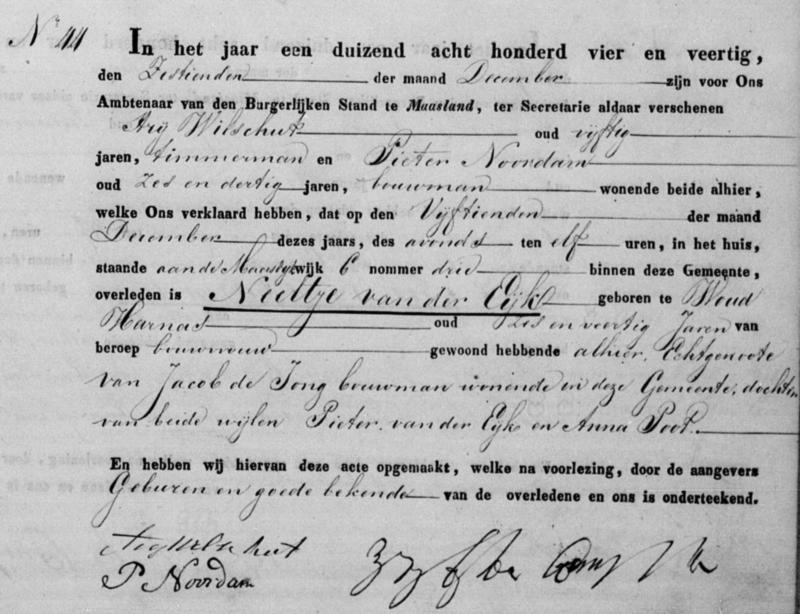 Nr. 44 In het jaar een duizend acht honderd vier en veertig,
den Zestienden der maand December zijn voor Ons
Ambtenaar van den Burgerlijken Stand te Maasland, ter Secretarie aldaar verschenen
Arij Wilschut oud vijftig
jaren, timmerman en Pieter Noordam
oud Zes en dertig jaren, bouwman wonende beide alhier,
welke Ons verklaard hebben, dat op den Vijftienden der maand
December dezes jaars, des avonds ten elf uren, in het huis,
staande aan de wijk 6 nommer drie binnen deze Gemeente,
overleden is Neeltje van der Eijk geboren te Woud
Harnas oud Zes en veertig Jaren van
beroep bouwvrouw gewoond hebbende alhier, Echtgenoote
van Jacob de Jong bouwman wonende in deze Gemeente, dochter
van beide wijlen Pieter van der Eijk en Anna Poot.
En hebben wij hiervan deze acte opgemaakt, welke na voorlezing, door de aangevers
Geburen en goede bekende van de overledene en ons is onderteekend.
Arij Wilschut
P Noordam